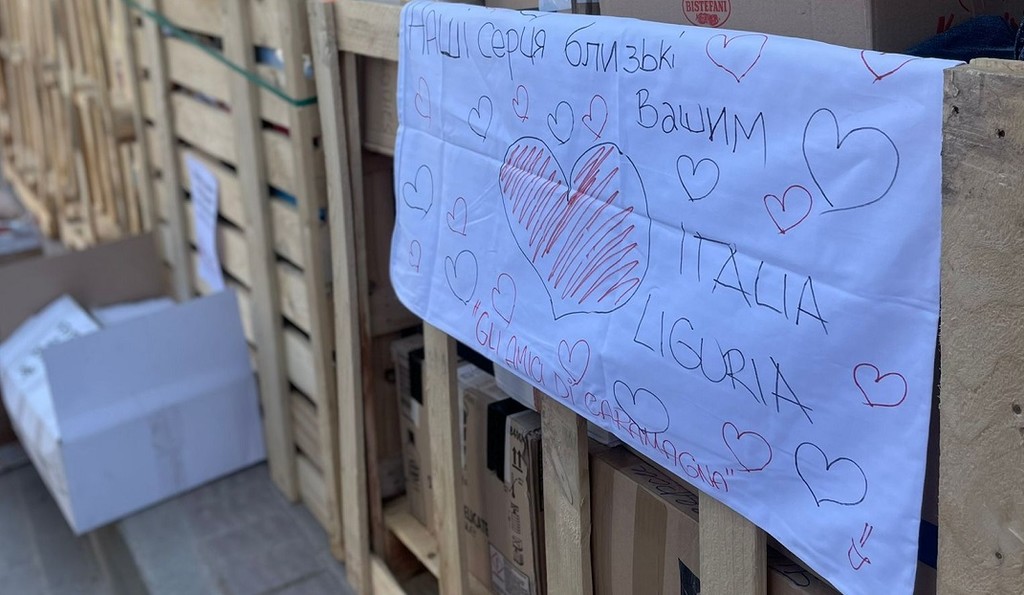 BISTEFANI
НАШІ серця близькі
Вашим
ITALIA
LIGURIA
"GLI AMICI DI CARAMAGNA"